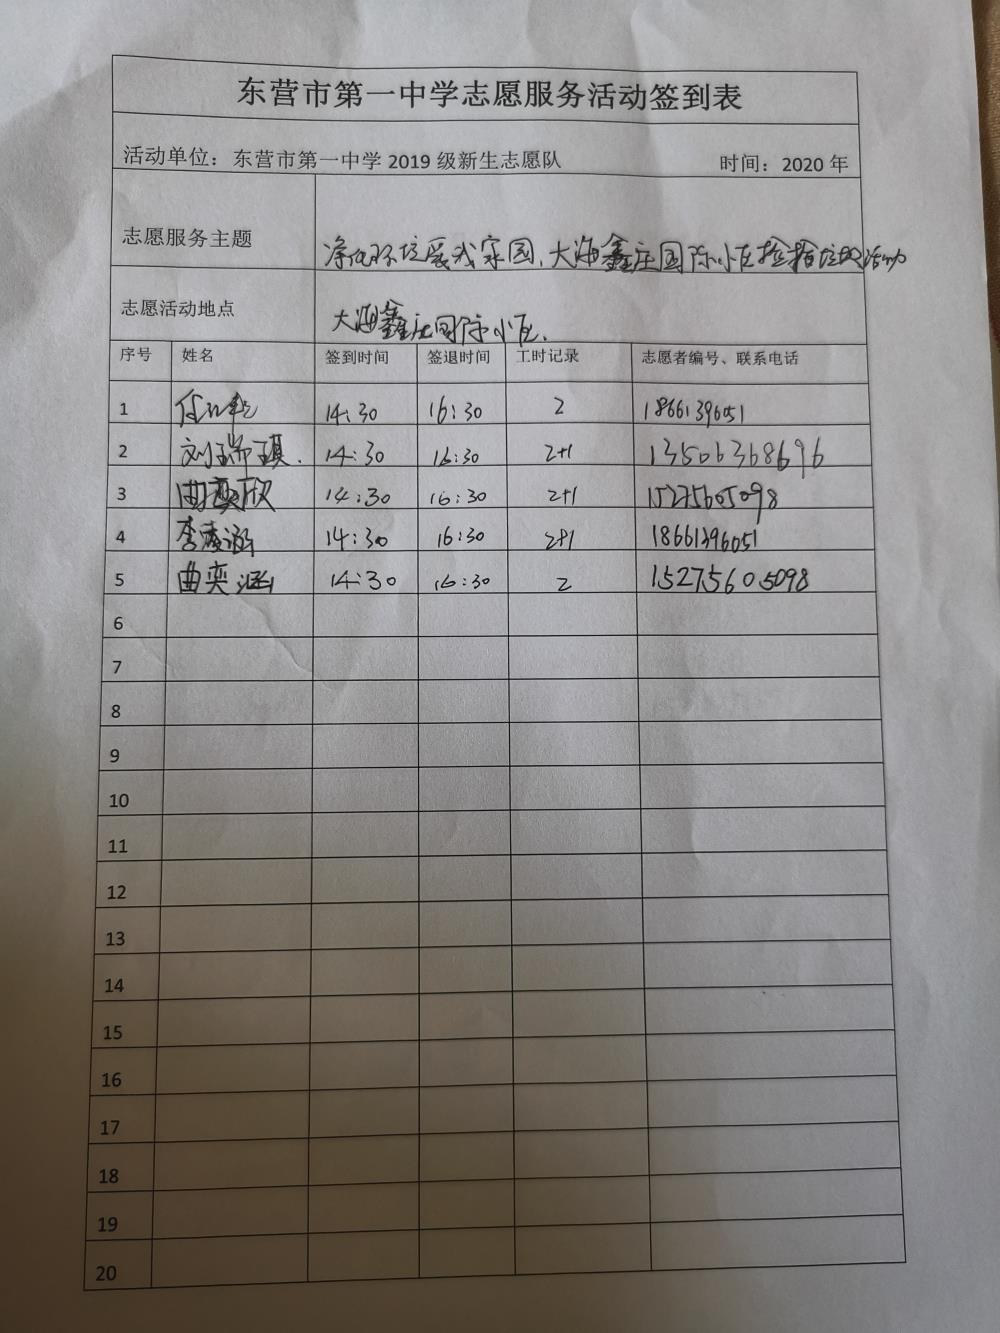 东营市第一中学志愿服务活动签到表
活动单位：东营市第一中学 2019 级新生志愿队 时间：2020 年
志愿服务主题 净化环境爱我家园，大海鑫庄国际小区捡拾垃圾活动
志愿活动地点 大海鑫庄国际小区.
序号 姓名 签到时间 签退时间 工时记录 志愿者编号、联系电话
1 14:30 16:30 2 18661396051
2 刘瑞琪. 14:30 16:30 2+1 13506368696
3 曲奕欣 14:30 16:30 2+1 15275605098
4 李凌涵 14:30 16:30 2+1 18661396051
5 曲奕涵 14:30 16:30 2 15275605098
6
7
8
9
10
11
12
13
14
15
16
17
18
19
20